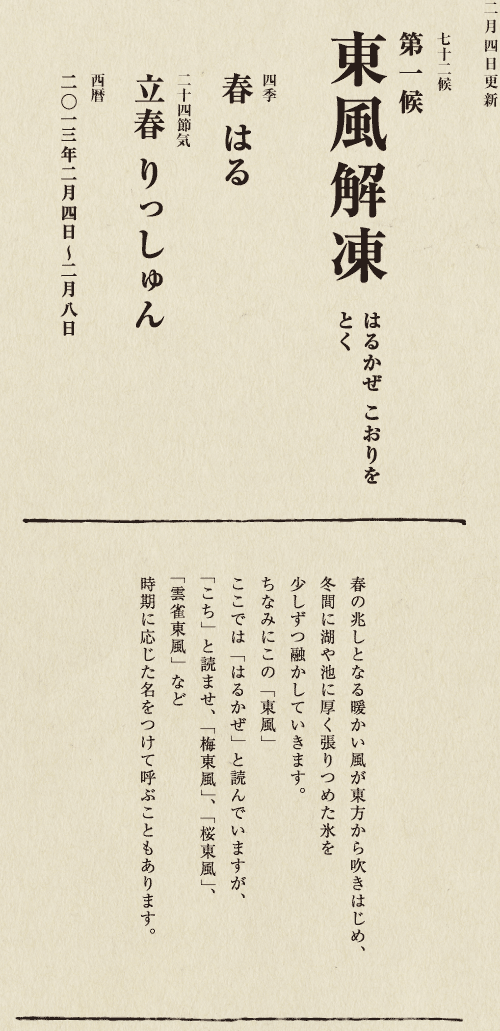 二月四日更新
七十二候
第一候
東風解凍
はるかぜ こおりを
とく
四季
春 はる
二十四節気
立春 りっしゅん
西暦
二〇一三年二月四日〜二月八日
春の兆しとなる暖かい風が東方から吹きはじめ、
冬間に湖や池に厚く張りつめた氷を
少しずつ融かしていきます。
ちなみにこの「東風」
ここでは「はるかぜ」と読んでいますが、
「こち」と読ませ、「梅東風」、「桜東風」、
「雲雀東風」など
時期に応じた名をつけて呼ぶこともあります。